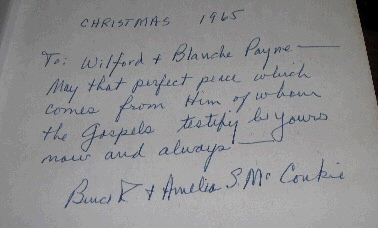 CHRISTMAS 1965
To: Wilford + Blanche Payne —
May that perfect peace which
comes from Him of whom
the Gospels testify be yours
now and always —
Bruce R + Amelia S. McConkie